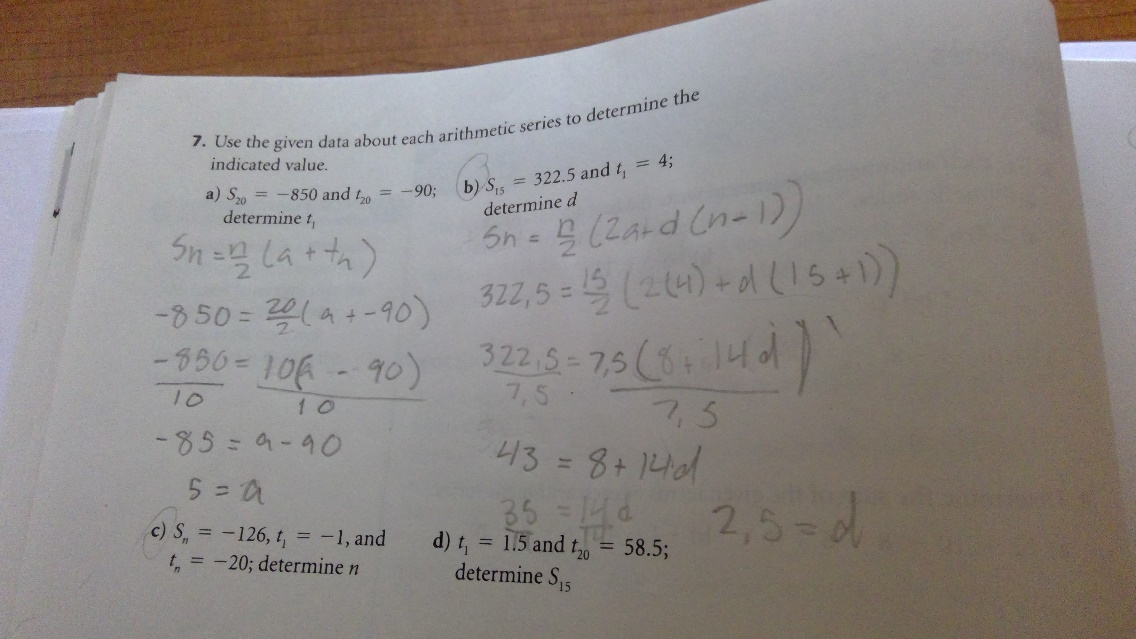 7. Use the given data about each arithmetic series to determine the
indicated value.
a) S₂₀ = −850 and t₂₀ = −90;
determine t₁
Sn = n/2 (a + tn)
-850 = 20/2 (a + -90)
-850/10 = 10(a - 90)/10
-85 = a - 90
5 = a
b) S₁₅ = 322.5 and t₁ = 4;
determine d
Sn = n/2 (2a + d(n-1))
322,5 = 15/2 (2(4) + d(15+1))
322,5/7,5 = 7,5(8 + 14d)/7,5
43 = 8 + 14d
35/14 = 14d/14
2,5 = d
c) Sₙ = −126, t₁ = −1, and
tₙ = −20; determine n
d) t₁ = 1.5 and t₂₀ = 58.5;
determine S₁₅